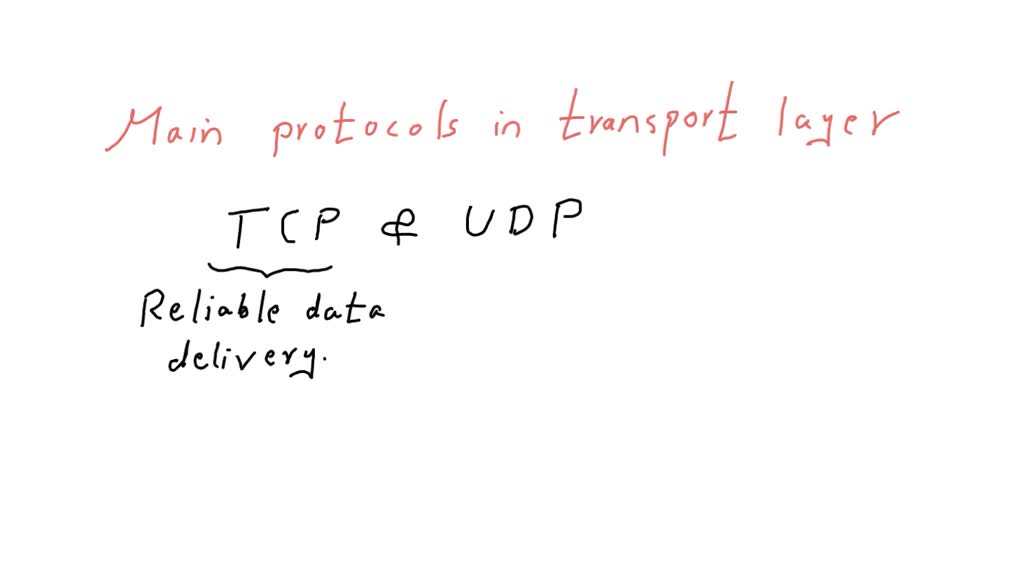 Main protocols in transport layer
TCP & UDP
Reliable data
delivery.